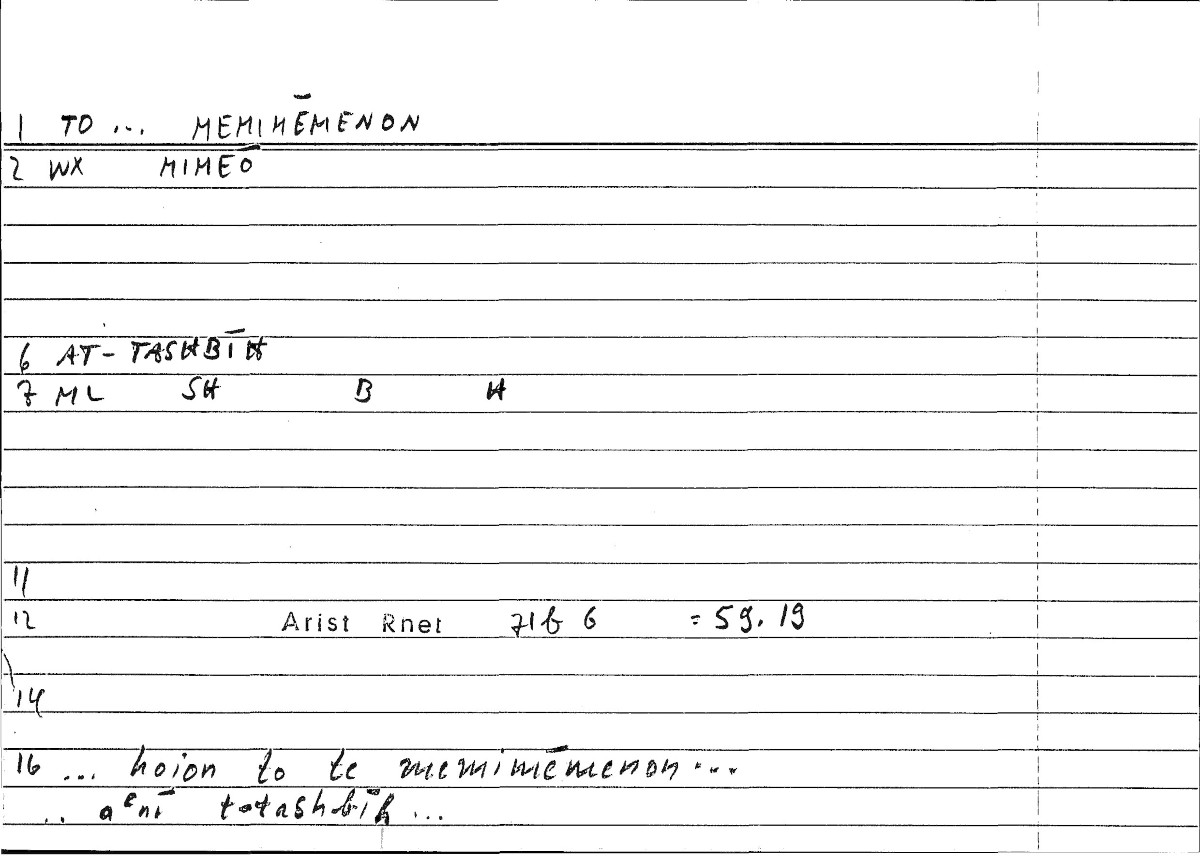 1 TO ... MEMIMĒMENON
2 WX MIMEŌ
6 AT-TASHBĪH
7 ML SH B H
11
12 Arist Rhet 71b 6 = 59.19
14
16 ... hoion to te memimēmenon ...
.. aʿnī t-tashbīh ...